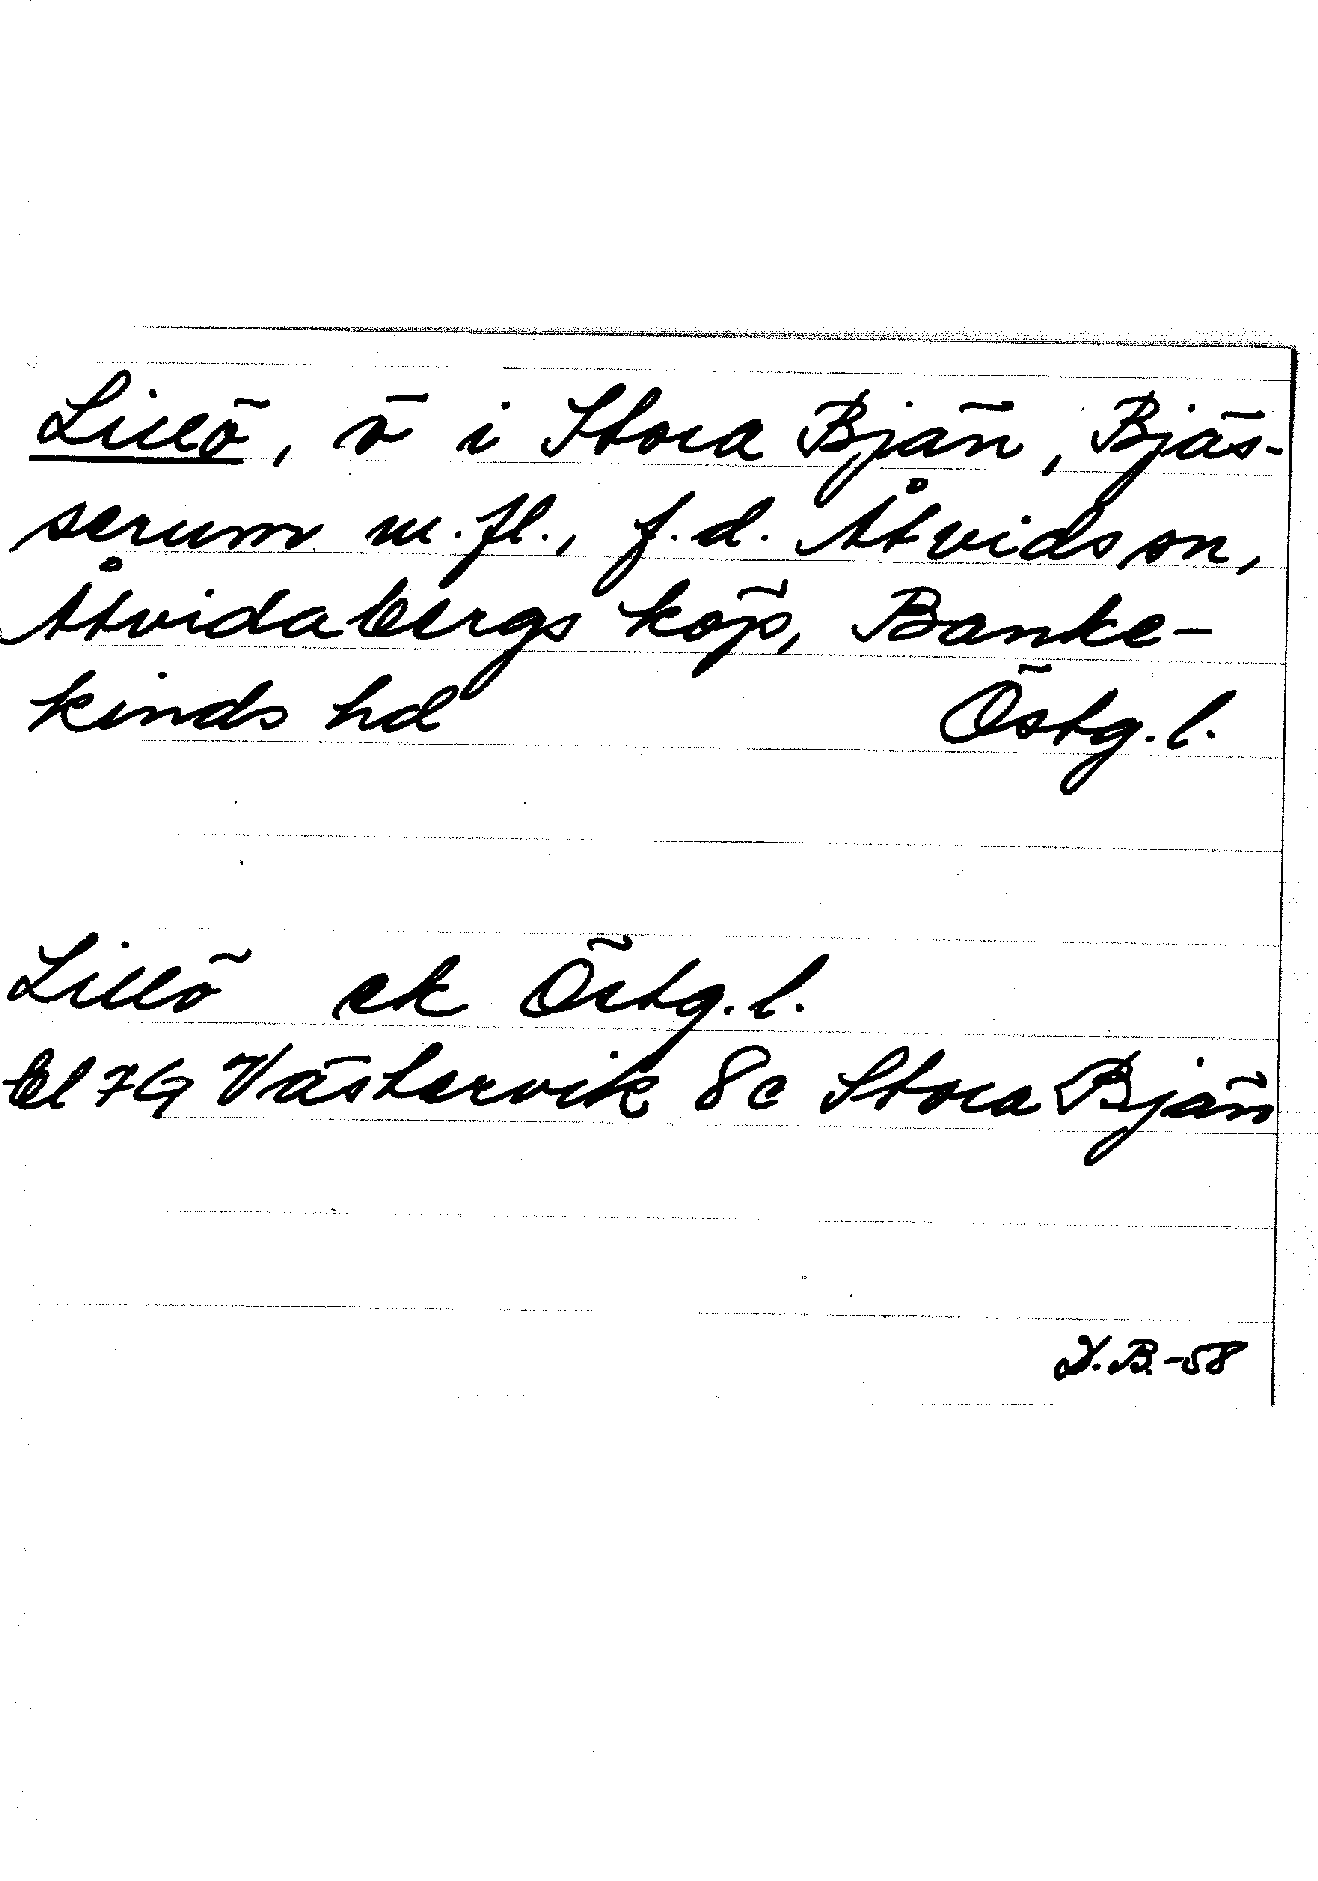 Lillö, ö i Stora Bjän, Bjäs-
serum m.fl., f.d. Åtvids sn,
Åtvidabergs köp, Banke-
kinds hd Östg.l.
Lillö ek Östg.l.
bl 7G Västervik 8c Stora Bjän
B.-58